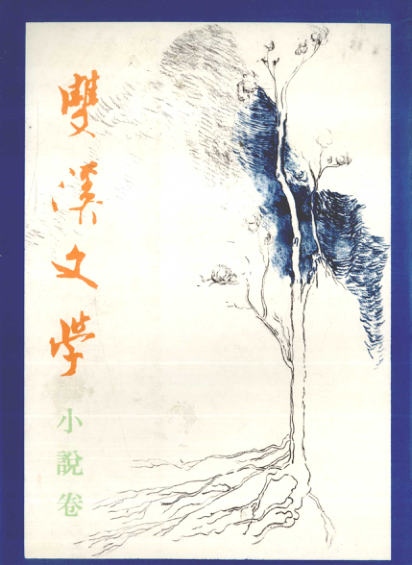 雙溪文学
小說卷